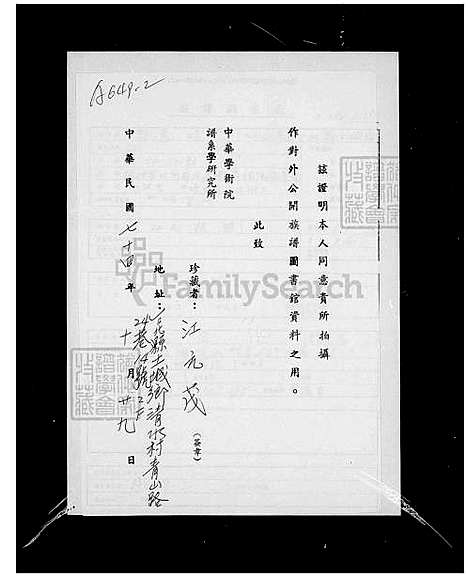 A649-2
茲證明本人同意貴所拍攝
作對外公開族譜圖書館資料之用。
此致
中華學術院
譜系學研究所
珍藏者：江元茂（簽章）
地址：台北縣土城鄉清水村青山路
24巷14號2F
中華民國七十四年十月廿九日
FamilySearch